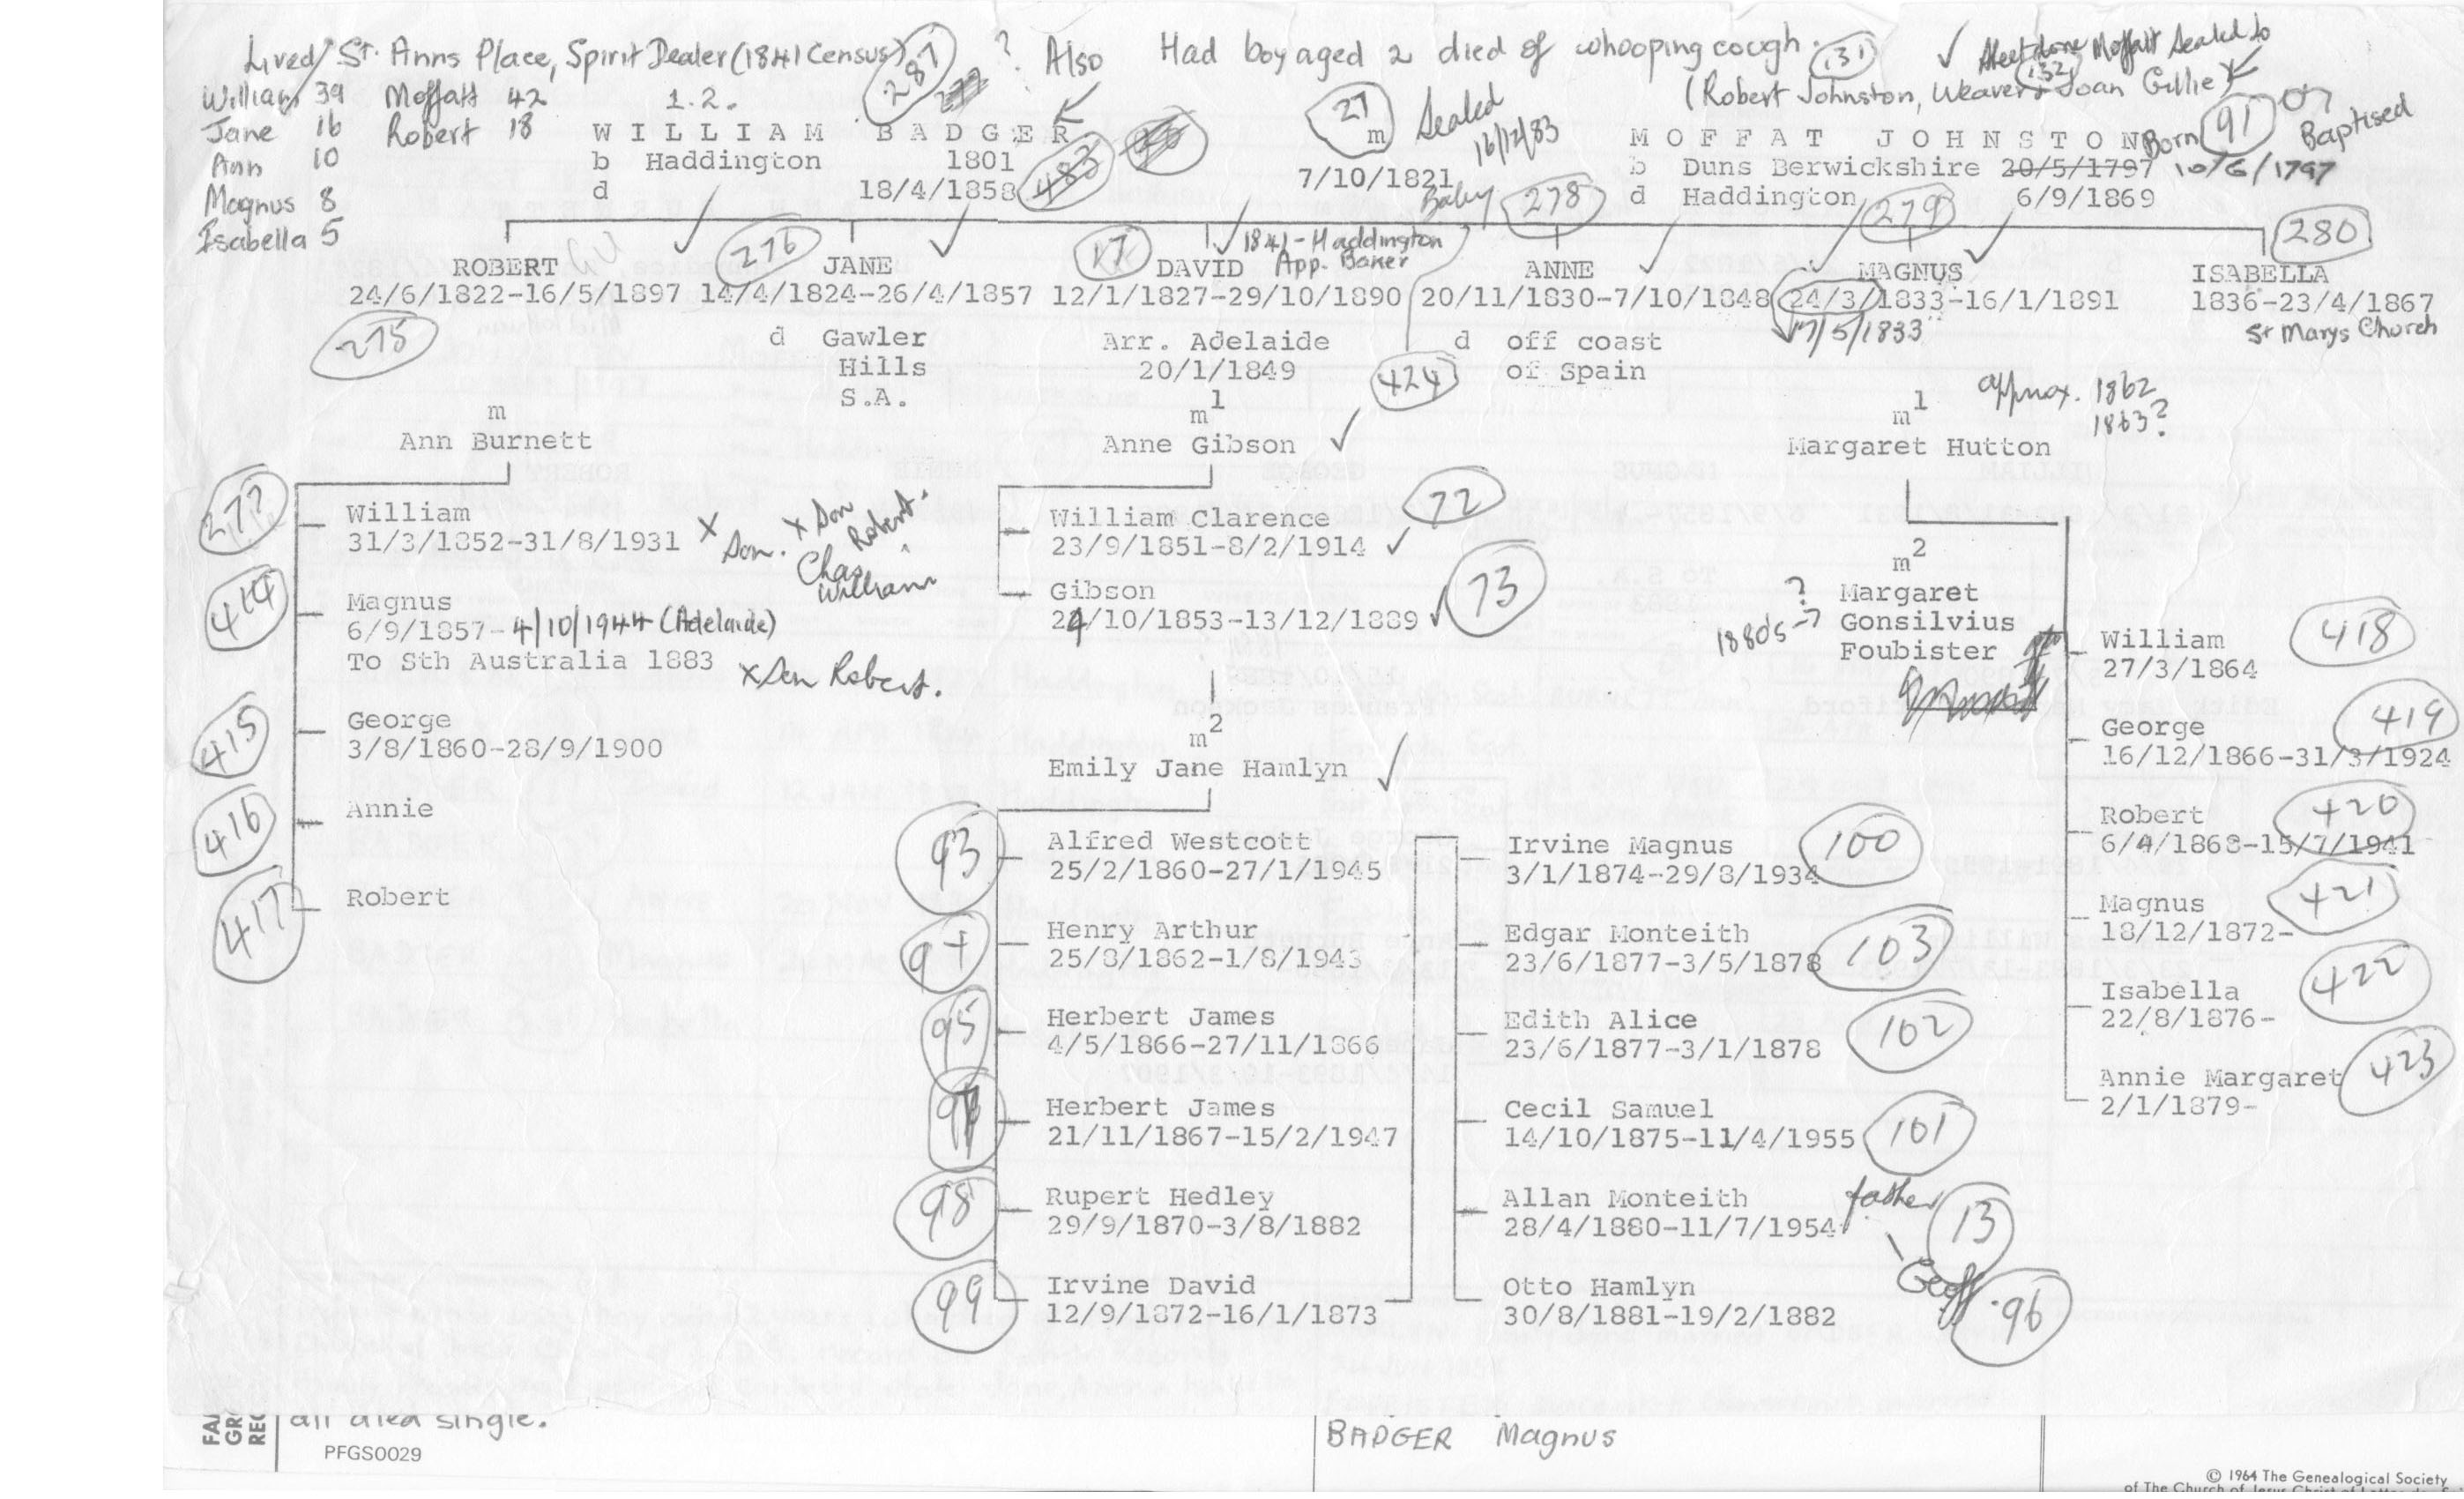 Lived St. Anns Place, Spirit Dealer (1841 Census) 287 ? Also Had boy aged 2 died of whooping cough. 131
Moffatt Sealed to
132
(Robert Johnston, Weaver & Joan Gillie)
William 39 Moffatt 42
Jane 16 Robert 18
Ann 10
Magnus 8
Isabella 5
1.2.
WILLIAM BADGER
b Haddington 1801
d 18/4/1858 483
27
m
7/10/1821
Sealed
16/12/83
MOFFAT JOHNSTON Born 91 or Baptised
b Duns Berwickshire 20/5/1797 10/6/1797
d Haddington 6/9/1869
ROBERT
24/6/1822-16/5/1897
275
276
JANE
14/4/1824-26/4/1857
d Gawler
Hills
S.A.
17
DAVID
1841 - Haddington
App. Baker
12/1/1827-29/10/1890
Arr. Adelaide
20/1/1849
Baby
424
278
ANNE
20/11/1830-7/10/1848
d off coast
of Spain
279
MAGNUS
24/3/1833-16/1/1891
17/5/1833
280
ISABELLA
1836-23/4/1867
St Marys Church
m
Ann Burnett
277
William
31/3/1852-31/8/1931
x Son.
x Son
Robert.
Chas.
William
414
Magnus
6/9/1857-4/10/1944 (Adelaide)
To Sth Australia 1883
x Son Robert.
415
George
3/8/1860-28/9/1900
416
Annie
417
Robert
m1
Anne Gibson
William Clarence 72
23/9/1851-8/2/1914
Gibson 73
24/10/1853-13/12/1889
m2
Emily Jane Hamlyn
93
Alfred Westcott
25/2/1860-27/1/1945
94
Henry Arthur
25/8/1862-1/8/1943
95
Herbert James
4/5/1866-27/11/1866
97
Herbert James
21/11/1867-15/2/1947
98
Rupert Hedley
29/9/1870-3/8/1882
99
Irvine David
12/9/1872-16/1/1873
Irvine Magnus 100
3/1/1874-29/8/1934
Edgar Monteith 103
23/6/1877-3/5/1878
Edith Alice 102
23/6/1877-3/1/1878
Cecil Samuel 101
14/10/1875-11/4/1955
Allan Monteith father 13
28/4/1880-11/7/1954
Geoff
Otto Hamlyn 96
30/8/1881-19/2/1882
m1
approx. 1862
1863?
Margaret Hutton
m2
? Margaret
1880's → Gonsilvius
Foubister
William 418
27/3/1864
George 419
16/12/1866-31/3/1924
Robert 420
6/4/1868-15/7/1941
Magnus 421
18/12/1872-
Isabella 422
22/8/1876-
Annie Margaret 423
2/1/1879-
all died single.
PFGS0029
BADGER Magnus
© 1964 The Genealogical Society